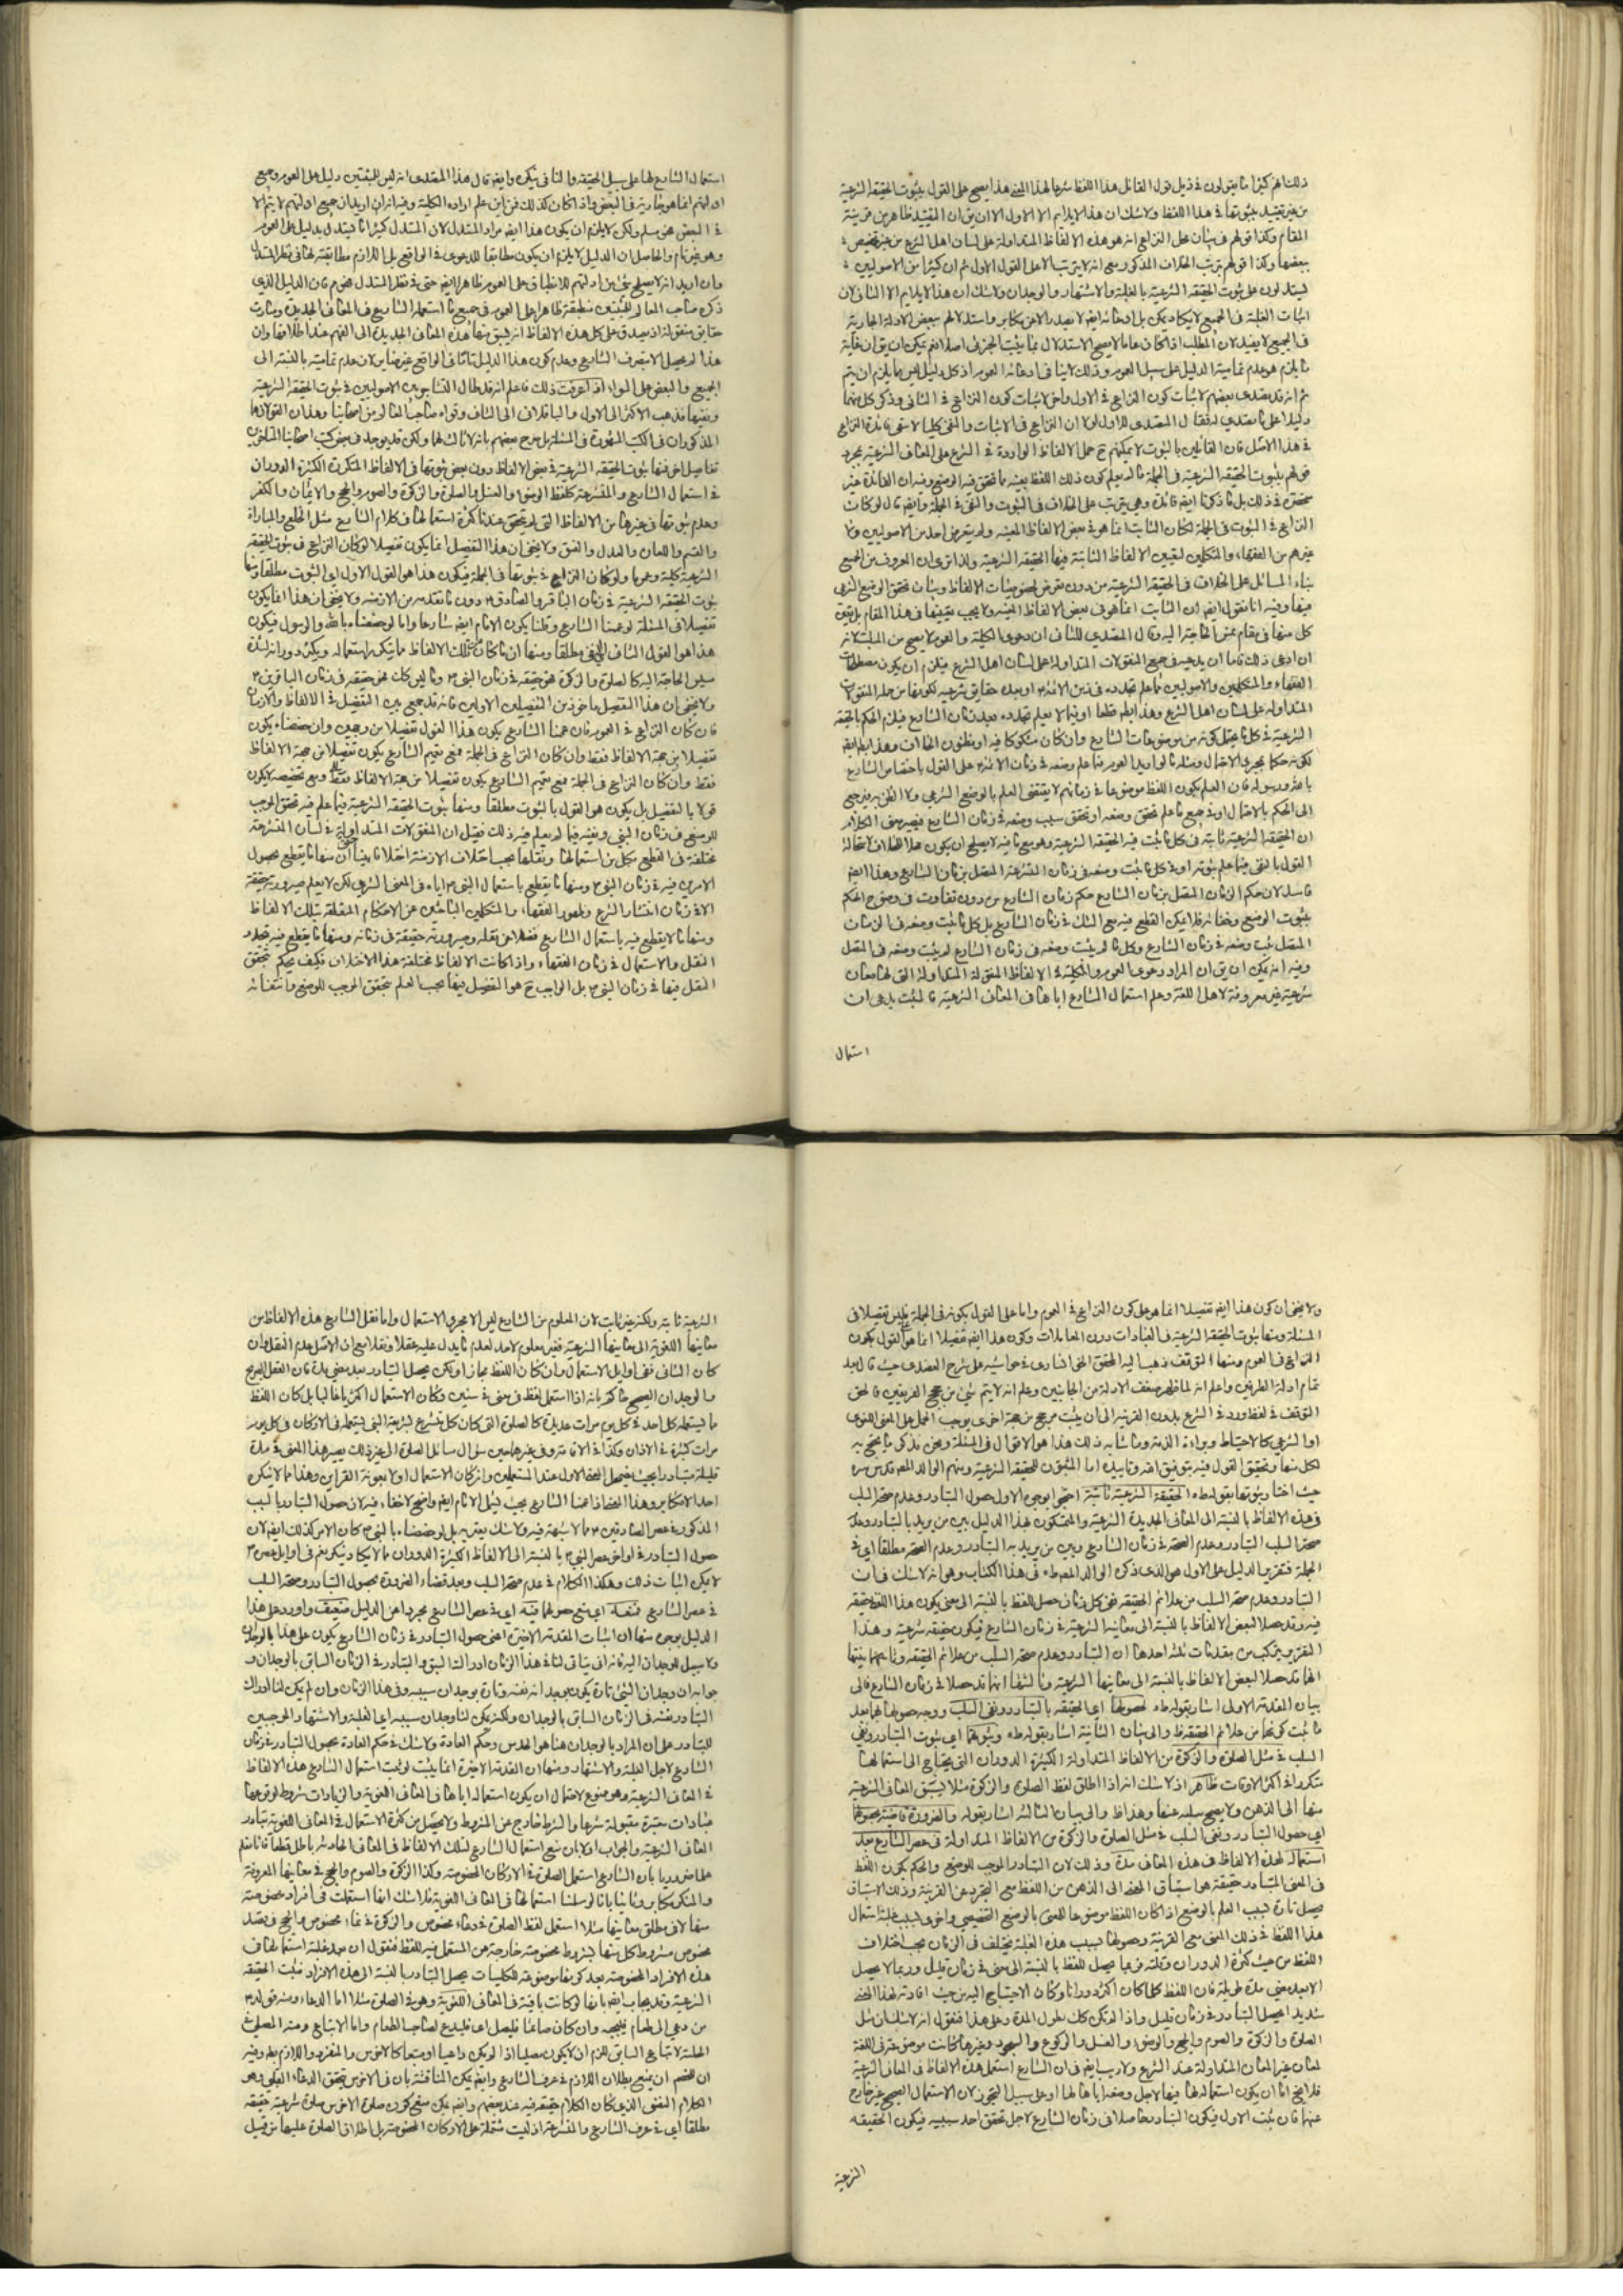 ذلك انهم كثيرا ما يقولون في ذيل قول القائل هذا اللفظ شرعا لهذا المعنى هذا يصح على القول بثبوت الحقيقة الشرعية
من غير تقييد بثبوتها في هذا اللفظ ولا شك ان هذا لا يلايم الا الاول الا ان يق ان المقيد ظاهر من قرينة
المقام وكذا قولهم في بيان محل النزاع انه هو هذه الالفاظ المتداولة على لسان اهل الشرع من غير تخصيص
ببعضها وكذا قولهم بترتب الخلاف المذكور مع انه لا يترتب الا على القول الاول ثم ان كثيرا من الاصوليين
يستدلون على ثبوت الحقيقة الشرعية بالغلبة والاشتهار والوجدان ولا شك ان هذا لا يلايم الا الثاني لان
اثبات الغلبة في الجميع لا يكاد يمكن بل ادعائه ايضا لا يصدر الا عن مكابر واستدلالهم ببعض الادلة الجارية
في الجميع لا يفيد لان المطلب اذا كان عاما لا يصح الاستدلال بما يثبت الجزئي اصلا نعم يمكن ان يق ان غاية
ما يلزم هو عدم تمامية الدليل على سبيل العموم وذلك لا ينافي ادعائه العموم اذ كل دليل ليس مما يلزم ان يتم
ثم انه قد تصدى بعضهم لاثبات كون النزاع في الاول واخر لاثبات كون النزاع في الثاني وذكر كل منهما
دليلا على ما تصدى له فقال المتصدي للاول لولا ان النزاع في الاثبات والنفي كليا لا تبقى فائدة النزاع
في هذا الاصل فان القائلين بالثبوت لا يمكنهم ح حمل الالفاظ الواردة في الشرع على المعاني الشرعية بمجرد
قولهم بثبوت الحقيقة الشرعية في الجملة ما لم يعلم كون ذلك اللفظ بعينه مما تحقق فيه الوضع وفيه ان الفائدة غير
منحصرة في ذلك بل ما ذكرنا ايضا فائدة وهي يترتب على الخلاف في الثبوت والنفي في الجملة وايضا قال لو كان
النزاع في الثبوت في الجملة لكان الثابت انما هو في بعض الالفاظ المعينة ولم يتعرض احد من الاصوليين ولا
غيرهم من الفقهاء والمتكلمين لتعيين الالفاظ الثابتة فيها الحقيقة الشرعية ولذا ترى ان المعروف من الجميع
بناء المسائل على الخلاف في الحقيقة الشرعية من دون تعرض لخصوصيات الالفاظ وبيان تحقق الوضع الشرعي
فيها وفيه انا نقول ايضا ان الثابت انما هو في بعض الالفاظ المعينة ولا يجب تعيينها في هذا المقام بل يتعين
كل منها في مقام تمس الحاجة اليه وقال المتصدي للثاني ان دعوى الكلية والعموم لا يصح من المثبت لانه
ان ادعى ذلك فاما ان يدعيه في جميع المنقولات المتداولة على لسان اهل الشرع فيلزم ان يكون مصطلحات
الفقهاء والمتكلمين والاصوليين مما علم تجدده في زمن الائمة او بعده حقايق شرعية لكونها من جملة المنقولات
المتداولة على لسان اهل الشرع وهذا باطل قطعا او فيما لا يعلم تجدده بعد زمان الشارع فيلزم الحكم بالحقيقة
الشرعية في كل ما يحتمل كونه من موضوعات الشارع وان كان مشكوكا فيه او مظنون الخلاف وهذا باطل ايضا
لكونه حكما بمجرد الاحتمال
بالله ورسوله فان العلم بكون اللفظ موضوعا في زمانهم لا يقتضى العلم بالوضع الشرعي ولا الظن به فيرجع
الى الحكم بالاحتمال او في جميع ما علم تحقق وضعه او تحقق سبب وضعه في زمان الشارع فيصير معنى الكلام
ان الحقيقة الشرعية ثابتة في كل ما ثبت فيه الحقيقة الشرعية وهو مع ما فيه لا يصلح ان يكون محلا للخلاف لاستحالة
القول بالنفي فيما علم ثبوته او في كل ما ثبت وضعه في زمان المتشرعة المتصل بزمان الشارع وهذا ايضا
فاسد لان حكم الزمان المتصل بزمان الشارع حكم زمان الشارع من دون تفاوت في وضوح الحكم
بثبوت الوضع وخفائه فلا يمكن القطع فيه مع الشك في زمان الشارع بل كل ما ثبت وضعه في الزمان
المتصل ثبت وضعه في زمان الشارع وكل ما لم يثبت وضعه في زمان الشارع لم يثبت وضعه في المتصل
وفيه انه يمكن ان يق ان المراد دعوى العموم والكلية في الالفاظ المنقولة المتداولة التي لها معان
شرعية غير معروفة لاهل اللغة وعلم استعمال الشارع اياها في المعاني الشرعية فالمثبت يدعى ان
استعمال
استعمال الشارع لها على سبيل الحقيقة والنافي ينكره وايضا قال هذا المتصدى انه ليس للمثبتين دليل على العموم وجميع
ادلتهم انما هو جارية في البعض فاذا كان كذلك فمن اين علم ارادة الكلية وفيه انه ان اريد ان جميع ادلتهم لا يتم الا
في البعض فغير مسلم ولكن لا يلزم ان يكون هذا ايضا مراد المستدل لان المستدل كثيرا ما يستدل بدليل على العموم
وهو غير تام والحاصل ان الدليل لا يلزم ان يكون مطابقا للدعوى في الواقع بل اللازم مطابقته لها في نظر المستدل
وان اريد انه لا يصلح شئ من ادلتهم للانطباق على العموم ظاهرا ايضا حتى في نظر المستدل فمم فان الدليل الذي
ذكره صاحب المعالم للمثبتين منطبقة ظاهرا على العموم في جميع ما استعمله الشارع في المعاني الجديدة وصارت
حقايق منقولة اذ يصدق على كل هذه الالفاظ انه يسبق منها هذه المعاني الجديدة الى الفهم عند اطلاقها وان
هذا لم يحصل الا بتصرف الشارع وعدم كون هذا الدليل تاما في الواقع غير ضاير لان عدم تماميته بالنسبة الى
الجميع والبعض على السواء اذا عرفت ذلك فاعلم انه قد طال التشاجر بين الاصوليين في ثبوت الحقيقة الشرعية
ونفيها فذهب الاكثر الى الاول والباقلاني الى الثاني وقواه صاحب المعالم من اصحابنا وهذان القولان هما
المذكوران في الكتب المشهورة في المسئلة بل صرح بعضهم بانه لا ثالث لهما ولكن قد يوجد في بعض كتب اصحابنا المتاخرين
تفاصيل اخر منها ثبوت الحقيقة الشرعية في بعض الالفاظ دون بعض بثبوتها في الالفاظ المتكررة الكثيرة الدوران
في استعمال الشارع والمتشرعة كلفظ الوضوء والغسل والصلوة والزكوة والصوم والحج والايمان والكفر
وعدم ثبوتها في غيرها من الالفاظ التي لم تتحقق عندنا كثرة استعمالها في كلام الشارع مثل الخلع والمباراة
والقسم واللعان والعدل والفسق ولا يخفى ان هذا التفصيل انما يكون تفصيلا لو كان النزاع في ثبوت الحقيقة
الشرعية كلية وعموما ولو كان النزاع في ثبوتها في الجملة فيكون هذا هو القول الاول اي الثبوت مطلقا ومنها
ثبوت الحقيقة الشرعية في زمان الباقر والصادق دون ما تقدمه من الازمنة ولا يخفى ان هذا انما يكون
تفصيلا في المسئلة لو عممنا الشارع وقلنا بكون الامام ايضا شارعا واما لو خصصناه بالله والرسول فيكون
هذا هو القول الثاني اي النفي مطلقا ومنها ان ما كان من تلك الالفاظ ما يتكرر استعماله ويكثر دورانه لشدة
مسيس الحاجة اليه كالصلوة والزكوة فهو حقيقة في زمان النبي وما ليس كذلك فهو حقيقة في زمان الباقرين
ولا يخفى ان هذا التفصيل ماخوذ من التفصيلين الاولين فانه قد جمع بين التفصيل في الالفاظ والازمان
فان كان النزاع في العموم فان عممنا الشارع يكون هذا القول تفصيلا من وجهين وان خصصناه يكون
تفصيلا من جهة الالفاظ فقط وان كان النزاع في الجملة فمع تعميم الشارع يكون تفصيلا من جهة الالفاظ
فقط وان كان النزاع في الجملة فمع تعميم الشارع يكون تفصيلا من جهة الالفاظ فقط ومع تخصيصه لا يكون
قولا بالتفصيل بل يكون هو القول بالثبوت مطلقا ومنها ثبوت الحقيقة الشرعية فيما علم فيه تحقق الموجب
للوضع في زمان النبي ونفيه فيما لم يعلم فيه ذلك بتفصيل ان المنقولات المتداولة في لسان المتشرعة
مختلفة في القطع بكل من استعمالها ونقلها بحسب اختلاف الازمنة اختلافا بينا فان منها ما يقطع بحصول
الامرين فيه في زمان النبي ومنها ما يقطع باستعمال النبي اياه في المعنى الشرعي لكن لا يعلم صيرورته حقيقة
الا في زمان انتشار الشرع وظهور الفقهاء والمتكلمين الباحثين عن الاحكام المتعلقة بتلك الالفاظ
ومنها ما لا يقطع فيه باستعمال الشارع فضلا عن نقله وصيرورته حقيقة في زمانه ومنها ما يقطع فيه بتجدد
النقل والاستعمال في زمان الفقهاء واذا كانت الالفاظ مختلفة هذا الاختلاف فكيف يحكم بتحقق
النقل فيها في زمان النبي بل الواجب ح هو التفصيل فيها بحسب العلم بتحقق الموجب للوضع وانتفائه
ولا يخفى ان كون هذا ايضا تفصيلا انما هو على كون النزاع في العموم واما على القول بكونه في الجملة فليس تفصيلا في
المسئلة ومنها ثبوت الحقيقة الشرعية في العبادات دون المعاملات وكون هذا ايضا تفصيلا انما هو القول بكون
النزاع في العموم ومنها التوقف ذهب اليه المحقق الخوانساري في حواشيه على شرح العضدي حيث قال بعد
تمام ادلة الطرفين واعلم انه لما ظهر ضعف الادلة من الجانبين وعلم انه لا يتم شئ من حجج الفريقين فالحق
التوقف في لفظ ورد في الشرع بدون القرينة الى ان يثبت مرجح من جهة اخرى يوجب الحمل على المعنى اللغوي
او الشرعي كالاحتياط وبراءة الذمة وما شابه ذلك هذا هو الاقوال في المسئلة ونحن نذكر ما يحتج به
لكل منها وتحقيق القول فيه بتوفيق الله وتاييده اما المثبتون للحقيقة الشرعية ومنهم الوالد المصنف قدس سره
حيث اختار ثبوتها بقوله طاب ثراه الحقيقة الشرعية ثابتة احتجوا بوجوه الاول حصول التبادر وعدم صحة السلب
في هذه الالفاظ بالنسبة الى المعاني الجديدة الشرعية والمتمسكون بهذا الدليل بين من يريد بالتبادر وعدم
صحة السلب التبادر وعدم الصحة في زمان الشارع وبين من يريد به التبادر وعدم الصحة مطلقا اي في
الجملة فتقرير الدليل على الاول هو الذي ذكره الوالد المصنف طاب ثراه في هذا الكتاب وهو انه لا شك في ان
التبادر وعدم صحة السلب من علائم الحقيقة ففي كل زمان حصل للفظ بالنسبة الى معنى يكون هذا اللفظ حقيقة
فيه وقد حصلا لبعض الالفاظ بالنسبة الى معانيه الشرعية في زمان الشارع فيكون حقيقة شرعية وهذا
التقرير يتركب من مقدمات ثلثة احدها ان التبادر وعدم صحة السلب من علائم الحقيقة وثانيتها
انهما قد حصلا لبعض الالفاظ بالنسبة الى معانيها الشرعية وثالثها انهما قد حصلا في زمان الشارع فالى
بيان المقدمة الاولى اشار بقوله طاب ثراه لحصولها اي الحقيقة بالتبادر ونفي السلب ووجه حصولها بهما بعد
ما ثبت كونهما من علائم الحقيقة ظ والى بيان الثانية اشار بقوله طاب ثراه وثبوتهما اي ثبوت التبادر ونفي
السلب في مثل الصلوة والزكوة من الالفاظ المتداولة الكثيرة الدوران التي يحتاج الى استعمالها
متكررا في اكثر الاوقات ظاهر اذ لا شك انه اذا اطلق لفظ الصلوة والزكوة مثلا يسبق المعاني الشرعية
منها الى الذهن ولا يصح سلبه عنها وهذا ظ والى بيان الثالثة اشار بقوله والضرورة قاضية بحصولهما
اي حصول التبادر ونفي السلب في مثل الصلوة والزكوة من الالفاظ المتداولة في عصر الشارع بعد
استعماله لهذه الالفاظ في هذه المعاني مدة وذلك لان التبادر الموجب للوضع والحكم بكون اللفظ
في المعنى المتبادر حقيقة هو استباق المعنى الى الذهن من اللفظ مع التجرد عن القرينة وذلك الاستباق
يحصل تارة بسبب العلم بالوضع اذا كان اللفظ موضوعا للمعنى بالوضع التخصيصي واخرى بسبب غلبة استعمال
هذا اللفظ في ذلك المعنى مع القرينة وحصولها بسبب هذه الغلبة يختلف في الزمان بحسب اختلاف
اللفظ من حيث كثرة الدوران وقلته فربما يحصل للفظ بالنسبة الى معنى في زمان قليل وربما لا يحصل
الا بعد مضى مدة طويلة فان اللفظ كلما كان اكثر دورانا وكان الاحتياج اليه من حيث افادته لهذا المعنى
شديدا يحصل التبادر في زمان قليل واذا لم يكن كك بطول المدة وعلى هذا فنقول انه لا شك ان مثل
الصلوة والزكوة والصوم والحج والوضوء والغسل والركوع والسجود وغيرها كانت موضوعة في اللغة
لمعان غير المعان المتداولة عند الشرع ولا ريب ايضا في ان الشارع استعمل هذه الالفاظ في المعاني الشرعية
فلا يخ اما ان يكون استعماله لها فيها لاجل وضعه اياها لها او على سبيل التجوز لان الاستعمال الصحيح غير خارج
عنهما فان ثبت الاول فيكون التبادر حاصلا في زمان الشارع لاجل تحقق احد سببيه فيكون الحقيقة
الشرعية
الشرعية ثابتة ولكنه غير ثابت لان المعلوم من الشارع ليس الا مجرد الاستعمال واما نقل الشارع هذه الالفاظ من
معانيها اللغوية الى معانيها الشرعية فغير معلوم لاحد لعدم ما يدل عليه عقلا ونقلا مع ان الاصل عدم النقل وان
كان الثاني ففي اوايل الاستعمال وان كان اللفظ مجازا ولكن يحصل التبادر بعد مضى مدة فان العقل الصريح
والوجدان الصحيح حاكم بانه اذا استعمل لفظ في معنى في سنين وكان الاستعمال اكثريا غالبا بل كان اللفظ
ما يستعمله كل احد في كل يوم مرات عديدة كالصلوة التي كان كل متشرع لشريعة النبي يستعمله في الاذان في كل يوم
مرات كثيرة في الاذان وكذا في الاقامة وفي غيرهما من سؤال مسائل الصلوة الى غير ذلك يصير هذا المعنى في مدة
قليلة متبادرا بحيث يضمحل المعنى الاول عند المستعملين وان كان الاستعمال اولا بمعونة القراين وهذا مما لا ينكره
احد الا مكابر وهذا المعنى اذا عممنا الشارع بحيث يشمل الامام ايضا واضح لا خفاء فيه لان حصول التبادر بالسبب
المذكور في عصر الصادقين مما لا شبهة فيه ولا شك يعتريه بل لو خصصناه بالنبي كان الامر كذلك ايضا لان
حصول التبادر في اواخر عصر النبي بالنسبة الى الالفاظ الكثيرة الدوران مما لا يكاد ينكر نعم في اوايل عصره
لا يمكن اثبات ذلك وهكذا الكلام في عدم صحة السلب وبعد قضاء الضرورة بحصول التبادر وصحة السلب
في عصر الشارع فمنعه اي منع حصولهما فيه اي في عصر الشارع مجردا عن الدليل ضعيف واورد على هذا
الدليل بوجوه منها ان اثبات المقدمة الاخيرة اعنى حصول التبادر في زمان الشارع يكون على هذا بالوجدان
ولا سبيل للوجدان اليه فانه انى يتأتى لنا في هذا الزمان ادراك السبق والتبادر في الزمان السابق بالوجدان و
جوابه ان وجدان الشئ تارة يكون بوجدانه نفسه وتارة بوجدان سببه وفي هذا الزمان وان لم يكن لنا ادراك
التبادر نفسه في الزمان السابق بالوجدان ولكنه يمكن لنا وجدان سببه اي الغلبة والاشتهار الموجبين
للتبادر على ان المراد بالوجدان هنا هو الحدس وحكم العادة ولا شك في حكم العادة بحصول التبادر في زمان
الشارع لاجل الغلبة والاشتهار ومنها ان المقدمة الاخيرة انما يثبت لو ثبت استعمال الشارع هذه الالفاظ
في المعاني الشرعية وهو ممنوع لاحتمال ان يكون استعماله اياها في المعاني اللغوية والزيادات شروط لوقوعها
عبادات معتبرة مقبولة شرعا والشرط خارج عن المشروط ولا يحصل من كثرة الاستعمال في المعاني اللغوية تبادر
المعاني الشرعية والجواب اولا بان منع استعمال الشارع لتلك الالفاظ في المعاني الحادثة باطل قطعا فانا نعلم
علما ضروريا بان الشارع استعمل الصلوة في الاركان المخصوصة وكذا الزكوة والصوم والحج في معانيها المعروفة
والمنكر مكابر وثانيا بانا لو سلمنا استعمالها في المعاني اللغوية فلا شك انها استعملت في افراد مخصوصة
منها لا في مطلق معانيها مثلا استعمل لفظ الصلوة في دعاء مخصوص والزكوة في نماء مخصوص والحج في قصد
مخصوص مشروط كل منها بشروط مخصوصة خارجة عن المستعمل فيه للفظ فنقول ان بعد غلبة استعمالها في
هذه الافراد المخصوصة بعد كونها موضوعة للكليات يحصل التبادر بالنسبة الى هذه الافراد فيثبت الحقيقة
الشرعية وقد يجاب ايضا بانها لو كانت باقية في المعاني اللغوية وهو في الصلوة مثلا اما الدعاء ومنه قوله
من دعي الى طعام فليجب وان كان صائما فليصل اي فليدع لصاحب الطعام واما الاتباع ومنه المصلي في
الحلبة لاتباع السابق للزم ان لا يكون مصليا اذا لم يكن داعيا او متبعا كالاخرس والمنفرد واللازم بط وفيه
ان للخصم ان يمنع بطلان اللازم في عرف الشارع وايضا يمكن المناقشة بان في الاخرس يتحقق الدعاء القلبي وهو
الكلام النفسي الذي كان الكلام حقيقة فيه عند بعضهم وايضا يمكن منع كون صلوة الاخرس صلوة شرعية حقيقة
مطلقا اي في عرف الشارع والمتشرعة اذ ليست مشتملة على الاركان المخصوصة بل اطلاق الصلوة عليها من قبيل